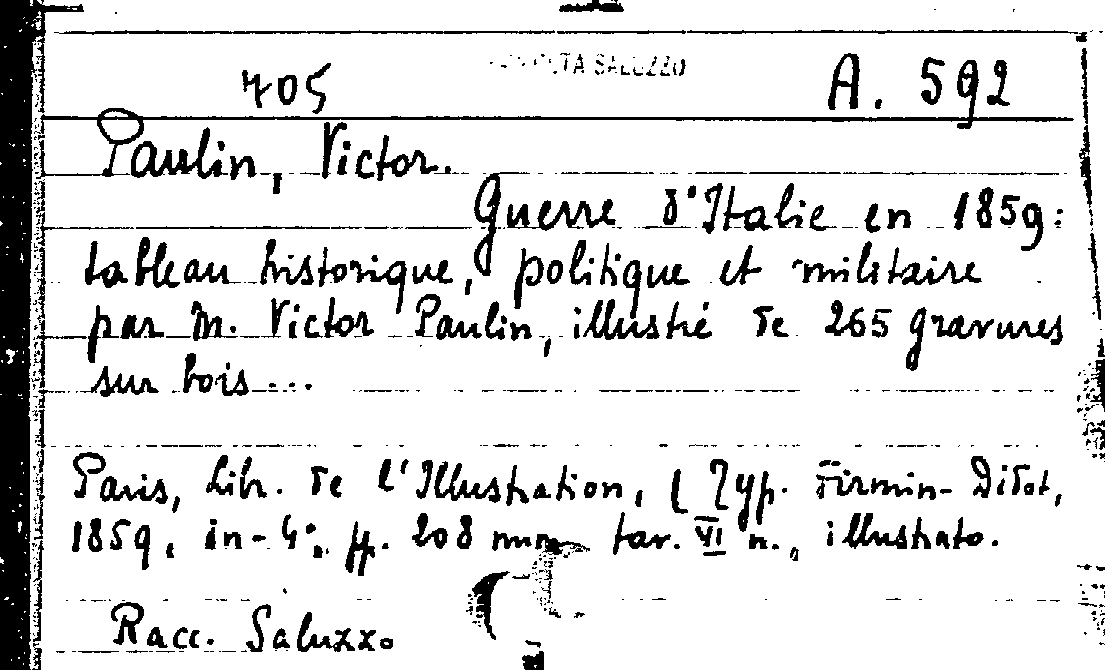 SALUZZO
705 A. 592
Paulin, Victor.
Guerre d'Italie en 1859:
tableau historique, politique et militaire
par m. Victor Paulin, illustré de 265 gravures
sur bois...
Paris, Libr. de l'Illustration, (Typ. Firmin-Didot,
1859, in-4°, pp. 208 num. tav. VI n., illustrato.
Racc. Saluzzo